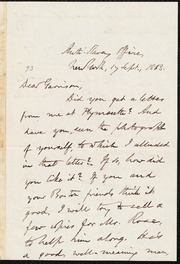 Anti-Slavery Office,
New York, 17 Sept., 1863.
Dear Garrison,
Did you get a letter
from me at Plymouth? And
have you seen the photograph
of yourself to which I alluded
in that letter? If so, how did
you like it? If you and
your Boston friends think it
good, I will try to sell a
few copies for Mr. Rowe,
to help him along. He's
a good, well-meaning man,